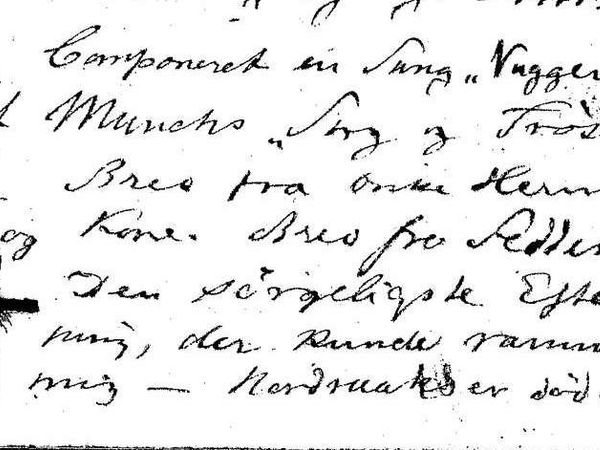 Componeret en Sang „Vugge
Munchs „Sorg og Trøs
Brev fra onkel Herm
og Kone. Brev fra Fedder
Den sørgeligste Efte
ning, der kunde ramm
mig — Nordraak er død